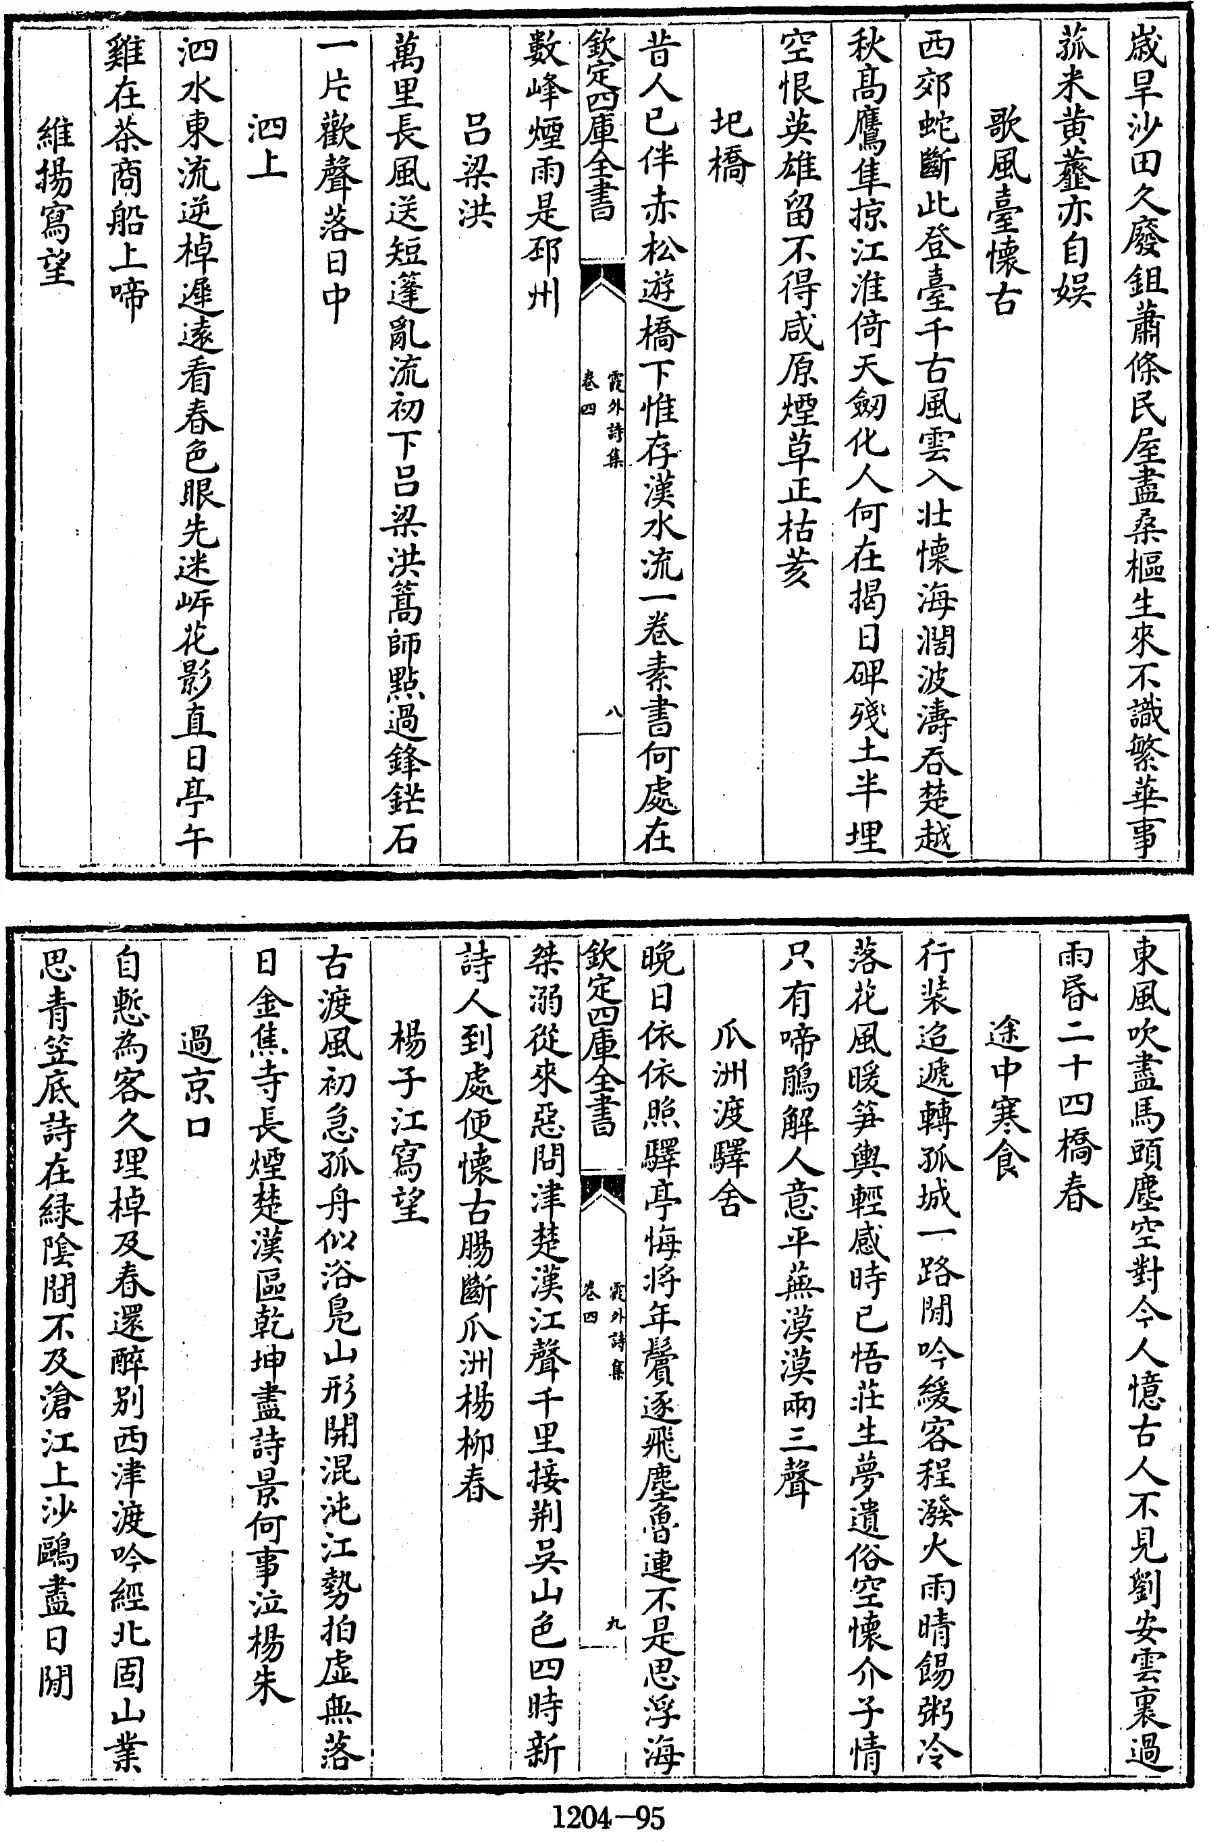 歲旱沙田久廢鉏蕭條民屋盡桑樞生來不識繁華事
菰米黄虀亦自娱
歌風臺懷古
西郊蛇斷此登臺千古風雲入壯懷海濶波濤吞楚越
秋髙鷹隼掠江淮倚天劔化人何在揭日碑殘土半埋
空恨英雄留不得咸原煙草正枯荄
圯橋
昔人已伴赤松遊橋下惟存漢水流一卷素書何處在
欽定四庫全書
霞外詩集
卷四
八
數峰煙雨是邳州
吕梁洪
萬里長風送短篷亂流初下吕梁洪篙師點過鋒鋩石
一片歡聲落日中
泗上
泗水東流逆棹遲遠看春色眼先迷岍花影直日亭午
雞在茶商船上啼
維揚寫望
東風吹盡馬頭塵空對今人憶古人不見劉安雲裏過
雨昏二十四橋春
途中寒食
行装迢遞轉孤城一路閒吟緩客程潑火雨晴餳粥冷
落花風暖笋輿輕感時已悟莊生夢遺俗空懷介子情
只有啼鵑解人意平蕪漠漠兩三聲
瓜洲渡驛舍
晚日依依照驛亭悔将年鬢逐飛塵魯連不是思浮海
欽定四庫全書
霞外詩集
卷四
九
桀溺從來惡問津楚漢江聲千里接荆吳山色四時新
詩人到處便懷古腸斷瓜洲楊柳春
楊子江寫望
古渡風初急孤舟似浴鳧山形開混沌江勢拍虚無落
日金焦寺長煙楚漢區乾坤盡詩景何事泣楊朱
過京口
自慙為客久理棹及春還醉别西津渡吟經北固山業
思青笠底詩在緑陰間不及滄江上沙鷗盡日閒
1204-95